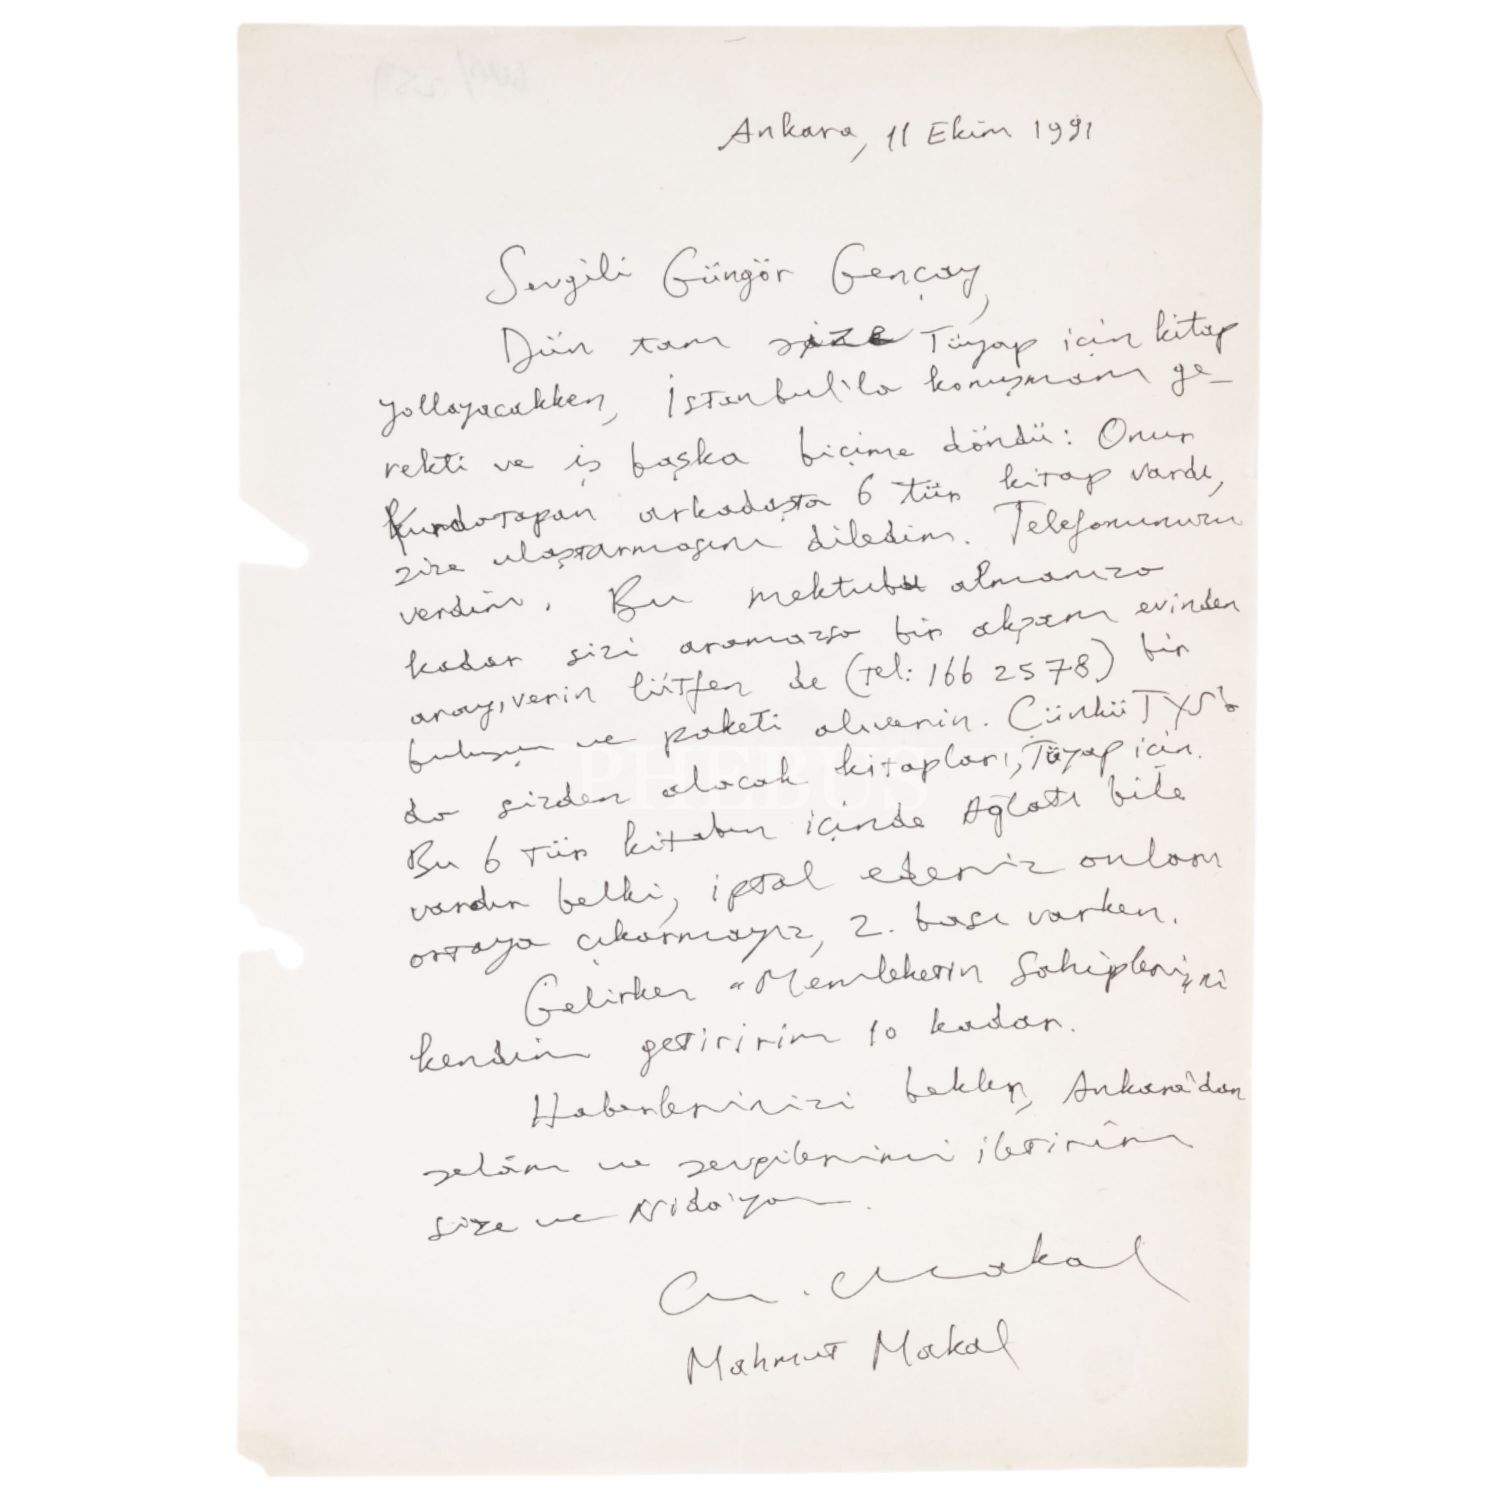 Ankara, 11 Ekim 1991
Sevgili Güngör Gençay,
Dün tam size Tüyap için kitap
yollayacakken, İstanbul'la konuşmam ge-
rekti ve iş başka biçime döndü: Onur
Kurdatapan arkadaşta 6 tür kitap vardı,
size ulaştırmasını diledim. Telefonunuzu
verdim. Bu mektubu almanıza
kadar sizi aramazsa bir akşam evinden
arayıverin lütfen de (tel: 166 25 78) bir
buluşun ve paketi alıverin. Çünkü TYS'b
da sizden alacak kitapları, Tüyap için.
PHEBUS
Bu 6 tür kitabın içinde Ağlatı bile
vardır belki, iptal ederiz onları
ortaya çıkarmayız, 2. bası varken.
Gelirken "Memleketin Sahipleri"ni
kendim getiririm 10 kadar.
Haberlerinizi bekler, Ankara'dan
selâm ve sevgilerimi iletirim
size ve Nida'ya.
M. Makal
Mahmut Makal